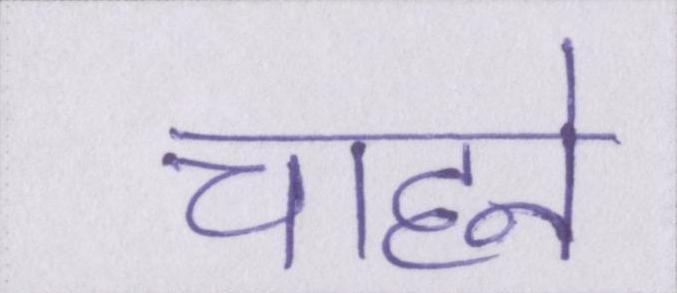 चाहने